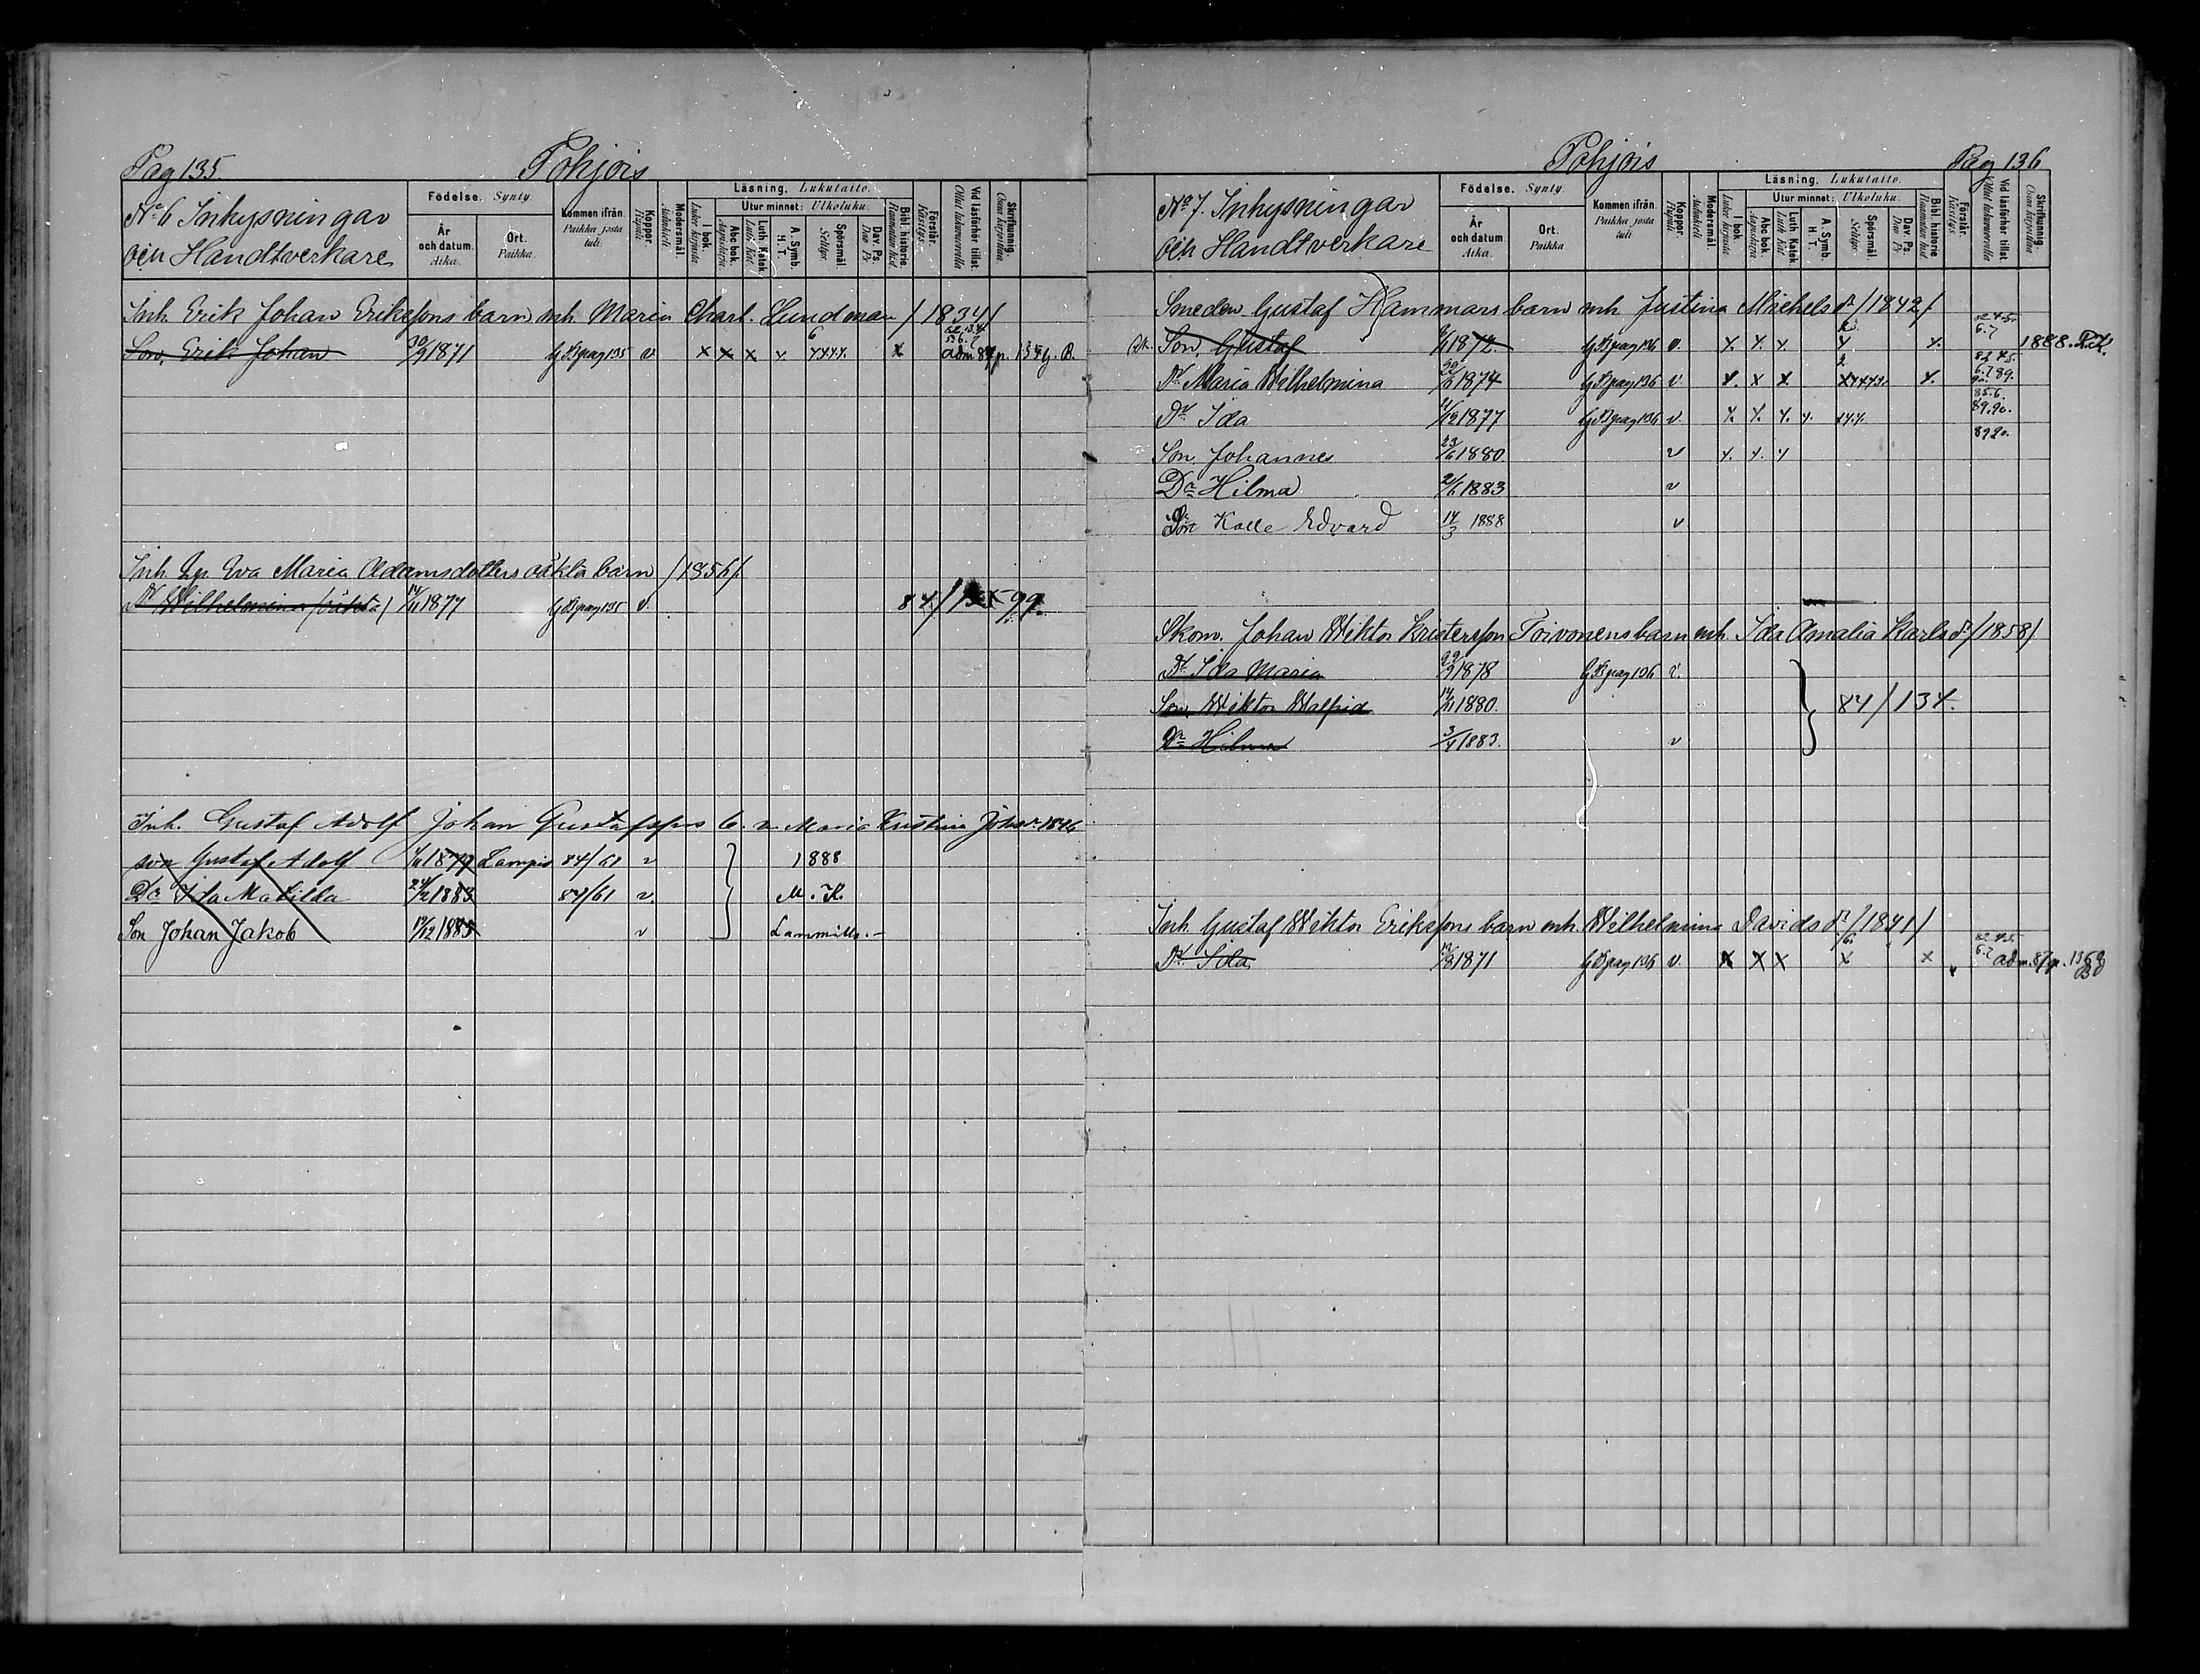 Pag 135. Pohjois
No 6 Inhysningar
och Handtverkare
Födelse. Synty.
År och datum. Aika.
Ort. Paikka.
Kommen ifrån. Paikka josta tuli.
Koppor. Rupuli.
Modersmål. Äidinkieli
Läsning, Lukutaito.
I bok. Lukee kirjasta
Utur minnet: Ulkoluku.
Abc bok. Aapiskirja
Luth. Katek. Luth. Kat.
A. Symb. H. T.
Spörsmål. Selitys.
Dav. Ps. Dav. Ps.
Bibl. historie. Raamatun hist.
Förstår. Käsitys.
Vid läsförhör tillst. Ollut lukuvuorolla
Skriftkunnig. Osaa kirjoittaa
Inh. Erik Johan Eriksons barn mh. Maria Charl. Hundman /1834/
Son, Erik Johan 30/9 1871 Gl. B pag 135 v x x x x 6 x.x.x.x. x adm 87 p. 134 g. B.
Inh. Lg. Eva Maria Adamsdotters oäkta barn /1856/.
Dr Wilhelmina (oäkta) 14/11 1877 Gl. B pag 135 v. 84/
Inh. Gustaf Adolf Johan Gustafsons b. m. Maria Kristina Johsdr 1846
son Gustaf Adolf 1879 Lampis 84/61 v } 1888
Dr Ida Matilda 24/2 1883 84/61 v. M. K.
Son Johan Jakob 19/12 1885 v Lammilla.-
Pohjois Pag 136
No 7. Inhysningar
och Handtverkare
Födelse. Synty.
År och datum. Aika.
Ort. Paikka
Kommen ifrån. Paikka josta tuli
Koppor. Rupuli.
Modersmål. Äidinkieli
Läsning, Lukutaito.
I bok. Lukee kirjasta
Utur minnet: Ulkoluku.
Abc bok. Aapiskirja
Luth. Katek. Luth. Kat.
A. Symb. H. T.
Spörsmål. Selitys.
Dav. Ps. Dav. Ps.
Bibl. historie Raamatun hist.
Förstår. Käsitys
Vid läsförhör tillst. Ollut lukuvuorolla
Skriftkunnig. Osaa kirjoittaa
Smeden Gustaf Hammars barn mh. Justina Michelsdr /1842/.
Son, Gustaf 1872. Gl. B pag 136 v. x. x. x. x x. 6.7 1888.
Dr Maria Wilhelmina 1874 Gl. B pag 136 v. x. x x. 2 x x x x. x. 6.7 89. 90.
Dr Ida 1877 Gl. B pag 136 v. x. x. x. x. x.x. 85.6. 89.90.
Son, Johannes 23/6 1880. v x. x. x 89 90.
Dr Hilma 21/6 1883 v
Son Kalle Edvard 14/3 1888 v
Skom. Johan Wiktor Kristersson Toivonens barn mh. Ida Amalia Karlsdr /1858/
Dr Ida Maria 1878 Gl. B pag 136 v.
Son, Wiktor Walfrid 14/11 1880. } 84/134.
Dr Hilma 3/4 1883. v
Inh. Gustaf Wiktor Eriksons barn mh. Wilhelmina Davidsdr /1841/
Dr Ida 1871 Gl. B pag 136 v. x x x x x 6.7 adm. 87 p. 136 g B